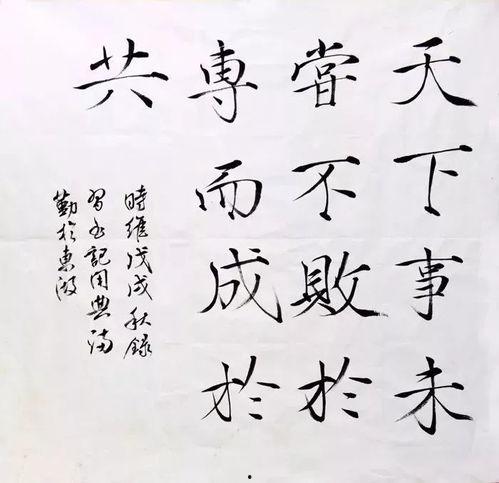 天下事未
嘗不敗於
專而成於
共
時維戊戌秋錄
習近記用典
勤於東波